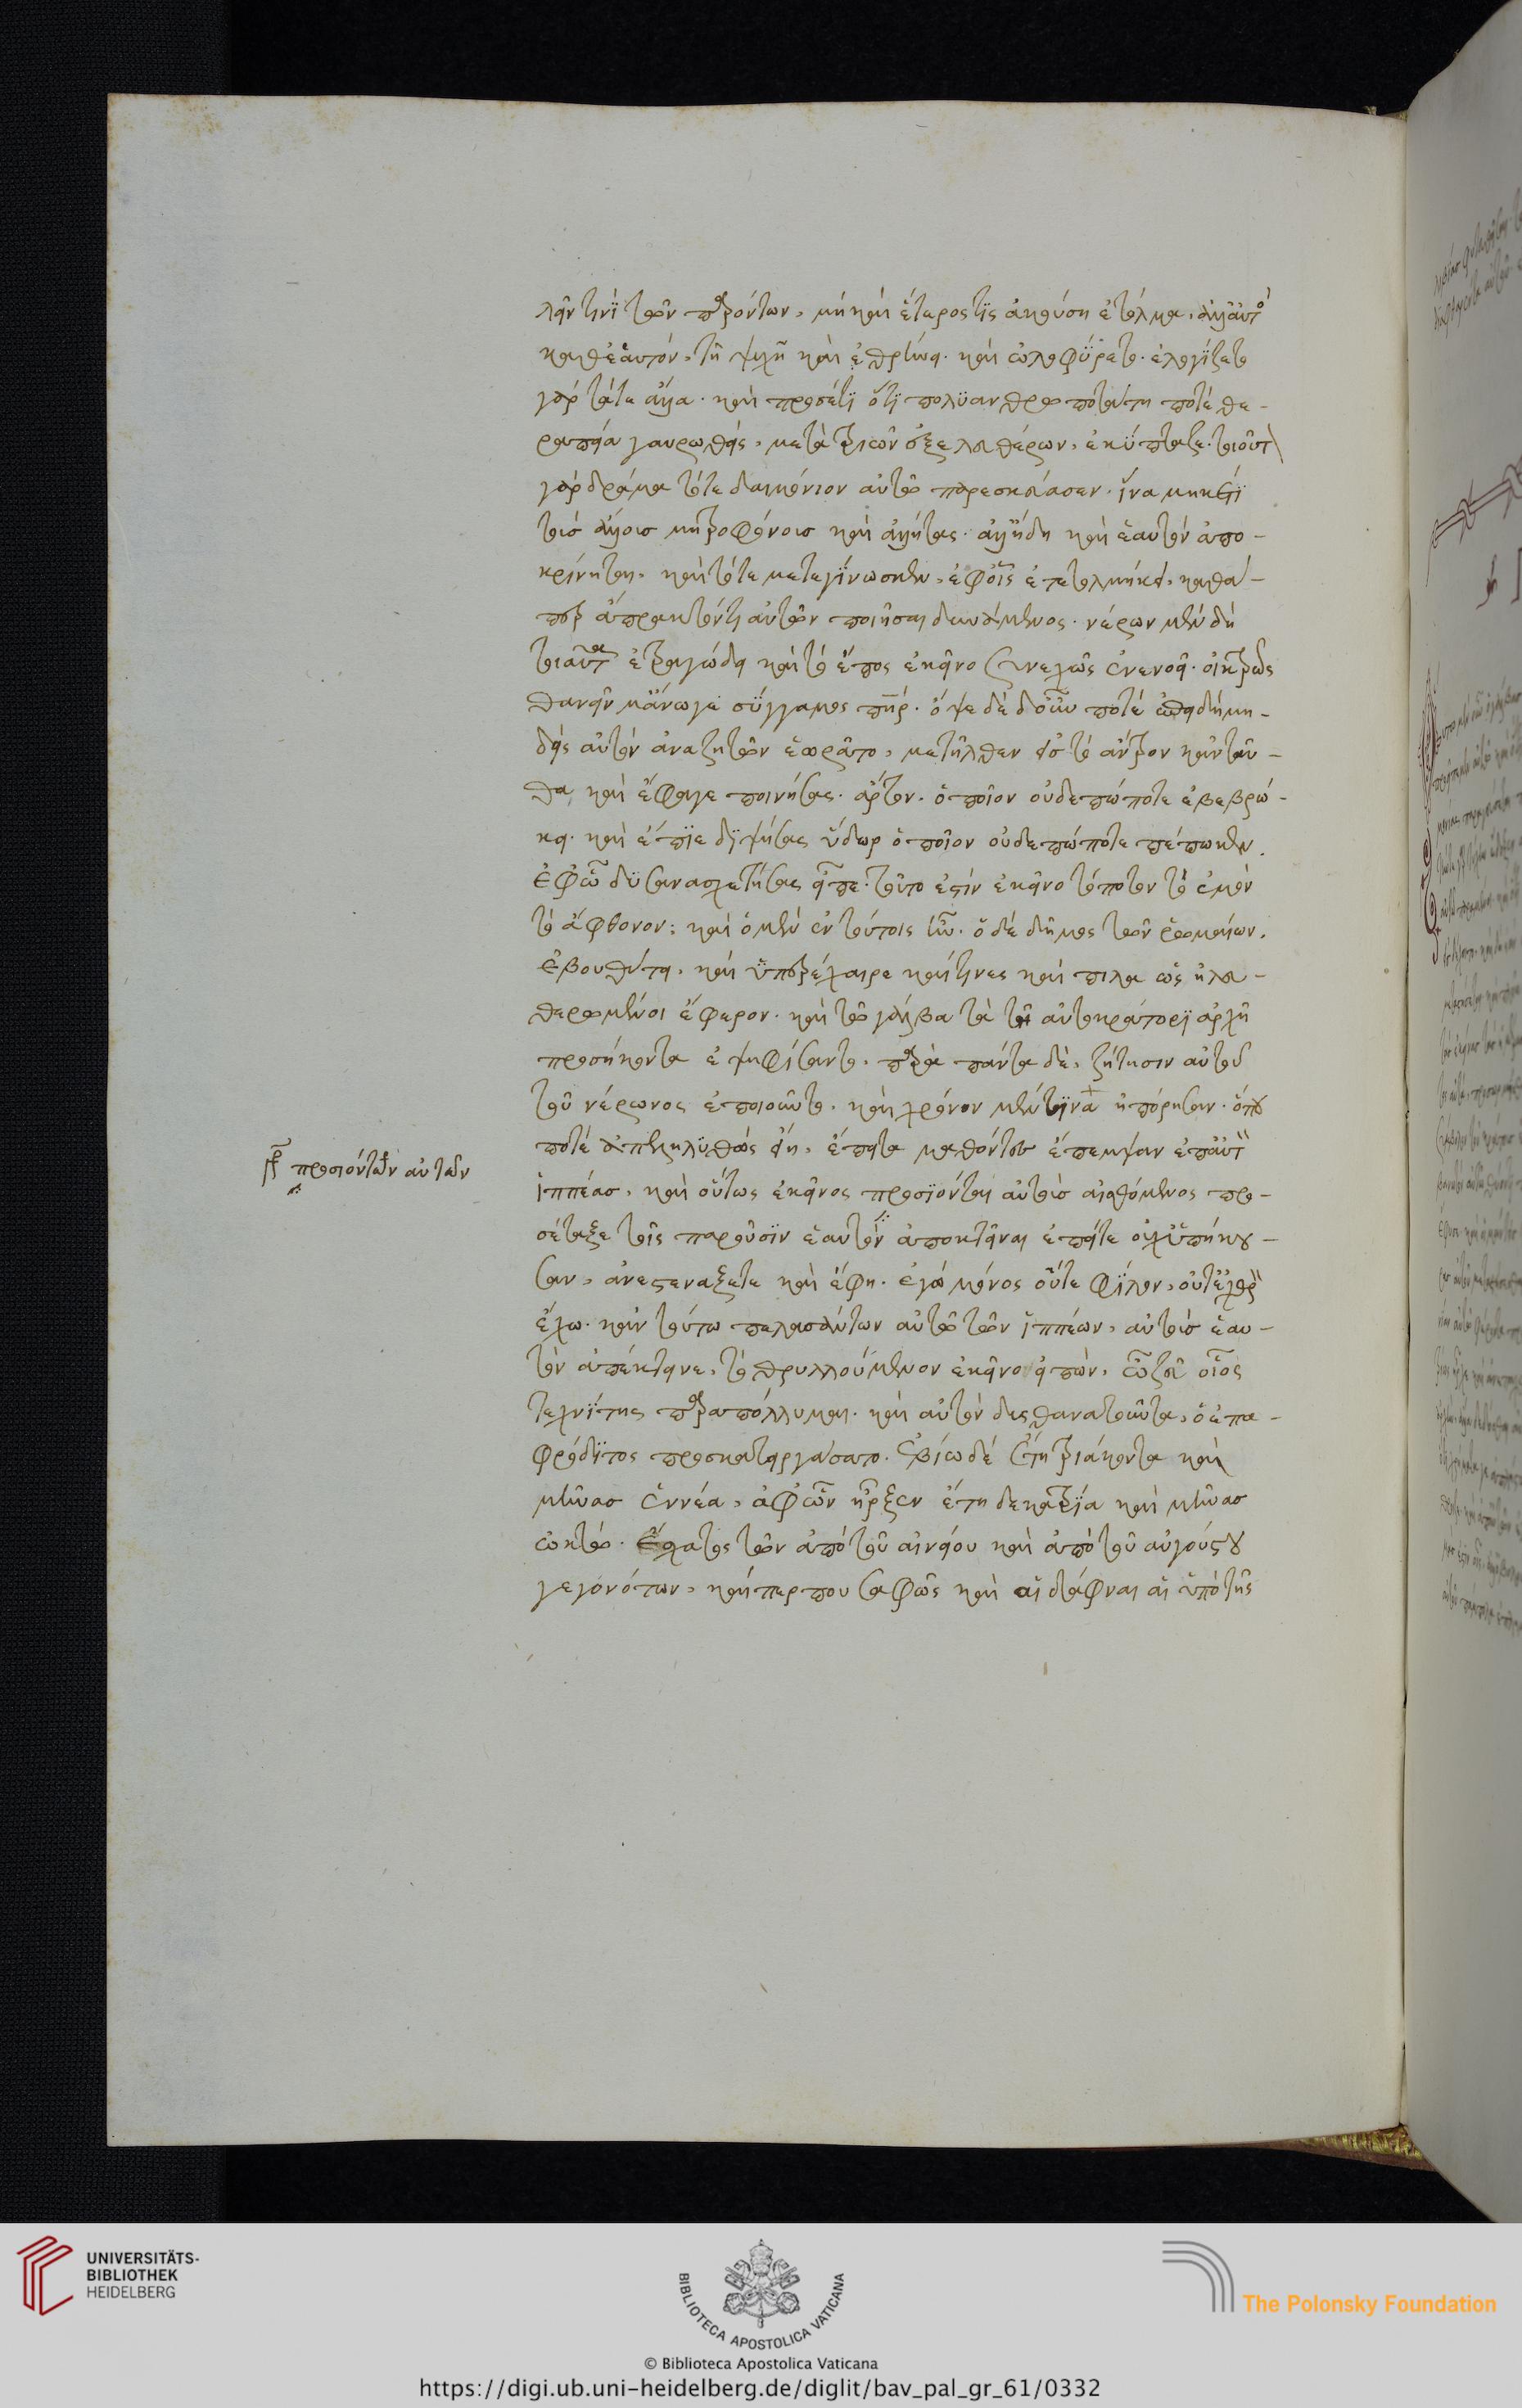 λεῖν τινὶ τῶν παρόντων, μὴ καὶ ἕτερος τὶς ἀκούση ἐτόλμα. ἀλλ' αὐτὸ
καθ' ἑαυτόν, τῇ ψυχῇ καὶ ἐθρήνει. καὶ ὠλοφύρετο. ἐλογίζετο
γάρ τάτε ἄλλα. καὶ προσέτι ὅτι πολυανθρωποτάτη ποτέ θε-
ραπεία γαυρωθείς, μετὰ τριῶν ἐξελευθέρων, ἐκύπταζε. τοιοῦτ
γάρ δράμα τότε δαιμόνιον αὐτῶ παρεσκεύασεν. ἵνα μηκέτι
τοὺσ ἄλλουσ μητροφόνουσ καὶ ἀλήτας. ἀλλ' ἤδη καὶ ἑαυτὸν ἀπο-
κρίνηται, καὶ τότε μετεγίνωσκεν, ἐφοῖς ἐτετολμήκει, καθά-
περ ἄπρακτόν τι αὐτῶν ποιῆσαι δυνάμενος. νέρων μὲν δὴ
τοιαῦτα ἐτραγώδει καὶ τὸ ἔπος ἐκεῖνο συνεχῶς ἐνενοεῖ. οἰκτρῶς
θανεῖν μ' ἄνωγε σύγγαμος πηρ. ὀψὲ δὲ δοῦν ποτέ ἐπειδὴ μη-
δείς αὐτὸν ἀναζητῶν ἑωρᾶτο, μετῆλθεν εἰσ τὸ ἄντρον κἀνταῦ-
θα, καὶ ἔφαγε πεινήσας. ἄρτον. ὁποῖον οὐδεπώποτε ἐβεβρώ-
κει. καὶ ἔπιε διψήσας ὕδωρ ὁποῖον οὐδεπώποτε πέπωκεν.
ἐφῶ δυσανασχετήσας εἶπε. τοῦτο ἐστίν ἐκεῖνο τό ποτον τὸ ἐμόν
τὸ ἄφθονον: καὶ ὁ μὲν ἐν τούτοις ἦν. ὁ δὲ δῆμος τῶν ῥωμαίων.
ἐβουθύτει. καὶ ὑπερέχαιρε καὶ τινες καὶ πιλα ὡς ἠλευ-
θερωμένοι ἔφερον. καὶ τῶ γάλβα τὰ τῇ αὐτοκράτορι ἀρχῇ
προσήκοντα ἐψηφίσαντο. παρὰ πάντα δὲ, ζήτησιν αὐτοῦ
τοῦ νέρωνος ἐποιοῦντο. καὶ χρόνον μὲν τινὰ ἠπόρησαν. ὅπου
ποτὲ ἀπεληλυθὼς εἴη. ἔπειτα μαθόντες ἔπεμψαν ἐπ' αὐτ
ἱππέασ. καὶ οὕτως ἐκεῖνος προσιόντας αὐτοὺσ αἰσθόμενος προ-
σέταξε τοῖς παροῦσιν ἑαυτὸν ἀποκτεῖναι ἐπείτε οὐχ ὑπήκου-
σαν, ἀνεστεναξετε καὶ ἔφη. ἐγώ μόνος οὔτε φίλον, οὔτ' ἐχθρ
ἔχω. κἀν τούτω πελασάντων αὐτῶ τῶν ἱππέων, αὐτὸσ ἑαυ-
τὸν ἀπέκτεινε, τὸ θρυλλούμενον ἐκεῖνο εἰπὼν, ὦ ζεῦ οἷος
τεχνίτης παραπόλλυμαι. καὶ αὐτὸν δυςθανατοῦντα, ὁ ἐπα-
φρόδιτος προσκατειργάσατο. ἐβίω δὲ ἔτη τριάκοντα καὶ
μῆνασ ἐννέα, ἀφ' ὧν ἦρξεν ἔτη δεκατρία καὶ μῆνασ
ὀκτώ. ἔσχατος τῶν ἀπὸ τοῦ αἰνείου καὶ ἀπὸ τοῦ αὐγούστου
γεγονότων, καίπερ που σαφῶς καὶ αἱ δάφναι αἱ ὑπὸ τῆς
γρ προσιόντων αὐτῶν
UNIVERSITÄTS-
BIBLIOTHEK
HEIDELBERG
BIBLIOTECA APOSTOLICA VATICANA
The Polonsky Foundation
© Biblioteca Apostolica Vaticana
https://digi.ub.uni-heidelberg.de/diglit/bav_pal_gr_61/0332